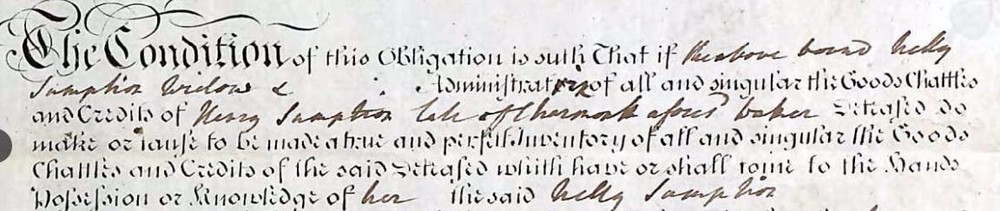 The Condition of this Obligation is such That if the above bound Nelly
Sumption Widow & Administratrix of all and singular the Goods Chattles
and Credits of Henry Sumption late of aforesd baker Deceased do
make or cause to be made a true and perfect Inventory of all and singular the Goods
Chattles and Credits of the said Deceased which have or shall come to the Hands
Possession or Knowledge of her the said Nelly Sumption